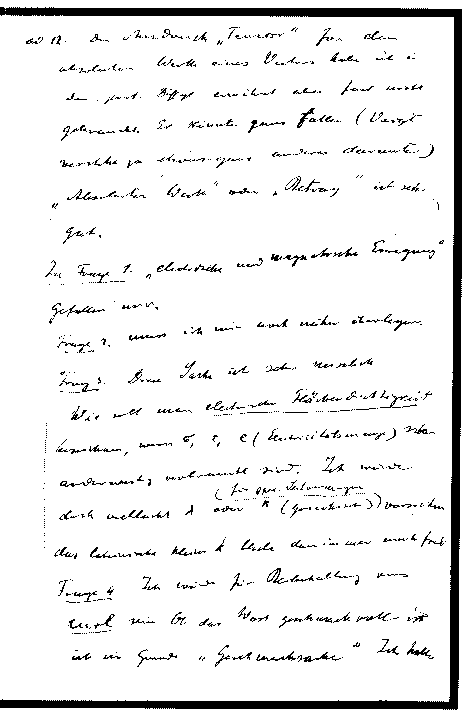 ad 12. Den Ausdruck „Tensor" für den
absoluten Wert eines Vectors habe ich in
den part. Diffgl erwähnt aber fast nicht
gebraucht. Er könnte ganz fallen (Voigt
versteht ja etwas ganz anderes darunter)
„Absoluter Wert" oder „Betrag" ist sehr
gut.
Zu Frage 1. „electrische und magnetische Erregung"
gefallen mir.
Frage 2. muss ich mir noch näher überlegen.
Frage 3. Diese Sache ist sehr misslich
Wie soll man electrische Flächendichtigkeit
bezeichnen, wenn σ, ε, e (Electricitätsmenge) schon
anderweitig verbraucht sind. Ich würde
(für spez. Leitvermögen
doch vielleicht λ oder k (geschrieben)) vorziehen
das lateinische kleine k bliebe dann immer noch frei
Frage 4 Ich würde für Beibehaltung von
curl sein Ob das Wort geschmackvoll ist
ist im Grunde „Geschmacksache" Ich halte